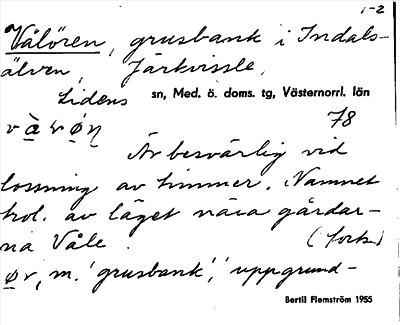 1-2
Vålören, grusbank i Indals-
älven, Järkvissle,
Lidens sn, Med. ö. doms. tg, Västernorrl. län
78
Är besvärlig vid
lossning av timmer. Namnet
hol. av läget nära gårdar-
na Våle. (forts.)
ør, m. 'grusbank', uppgrund-
Bertil Flemström 1955